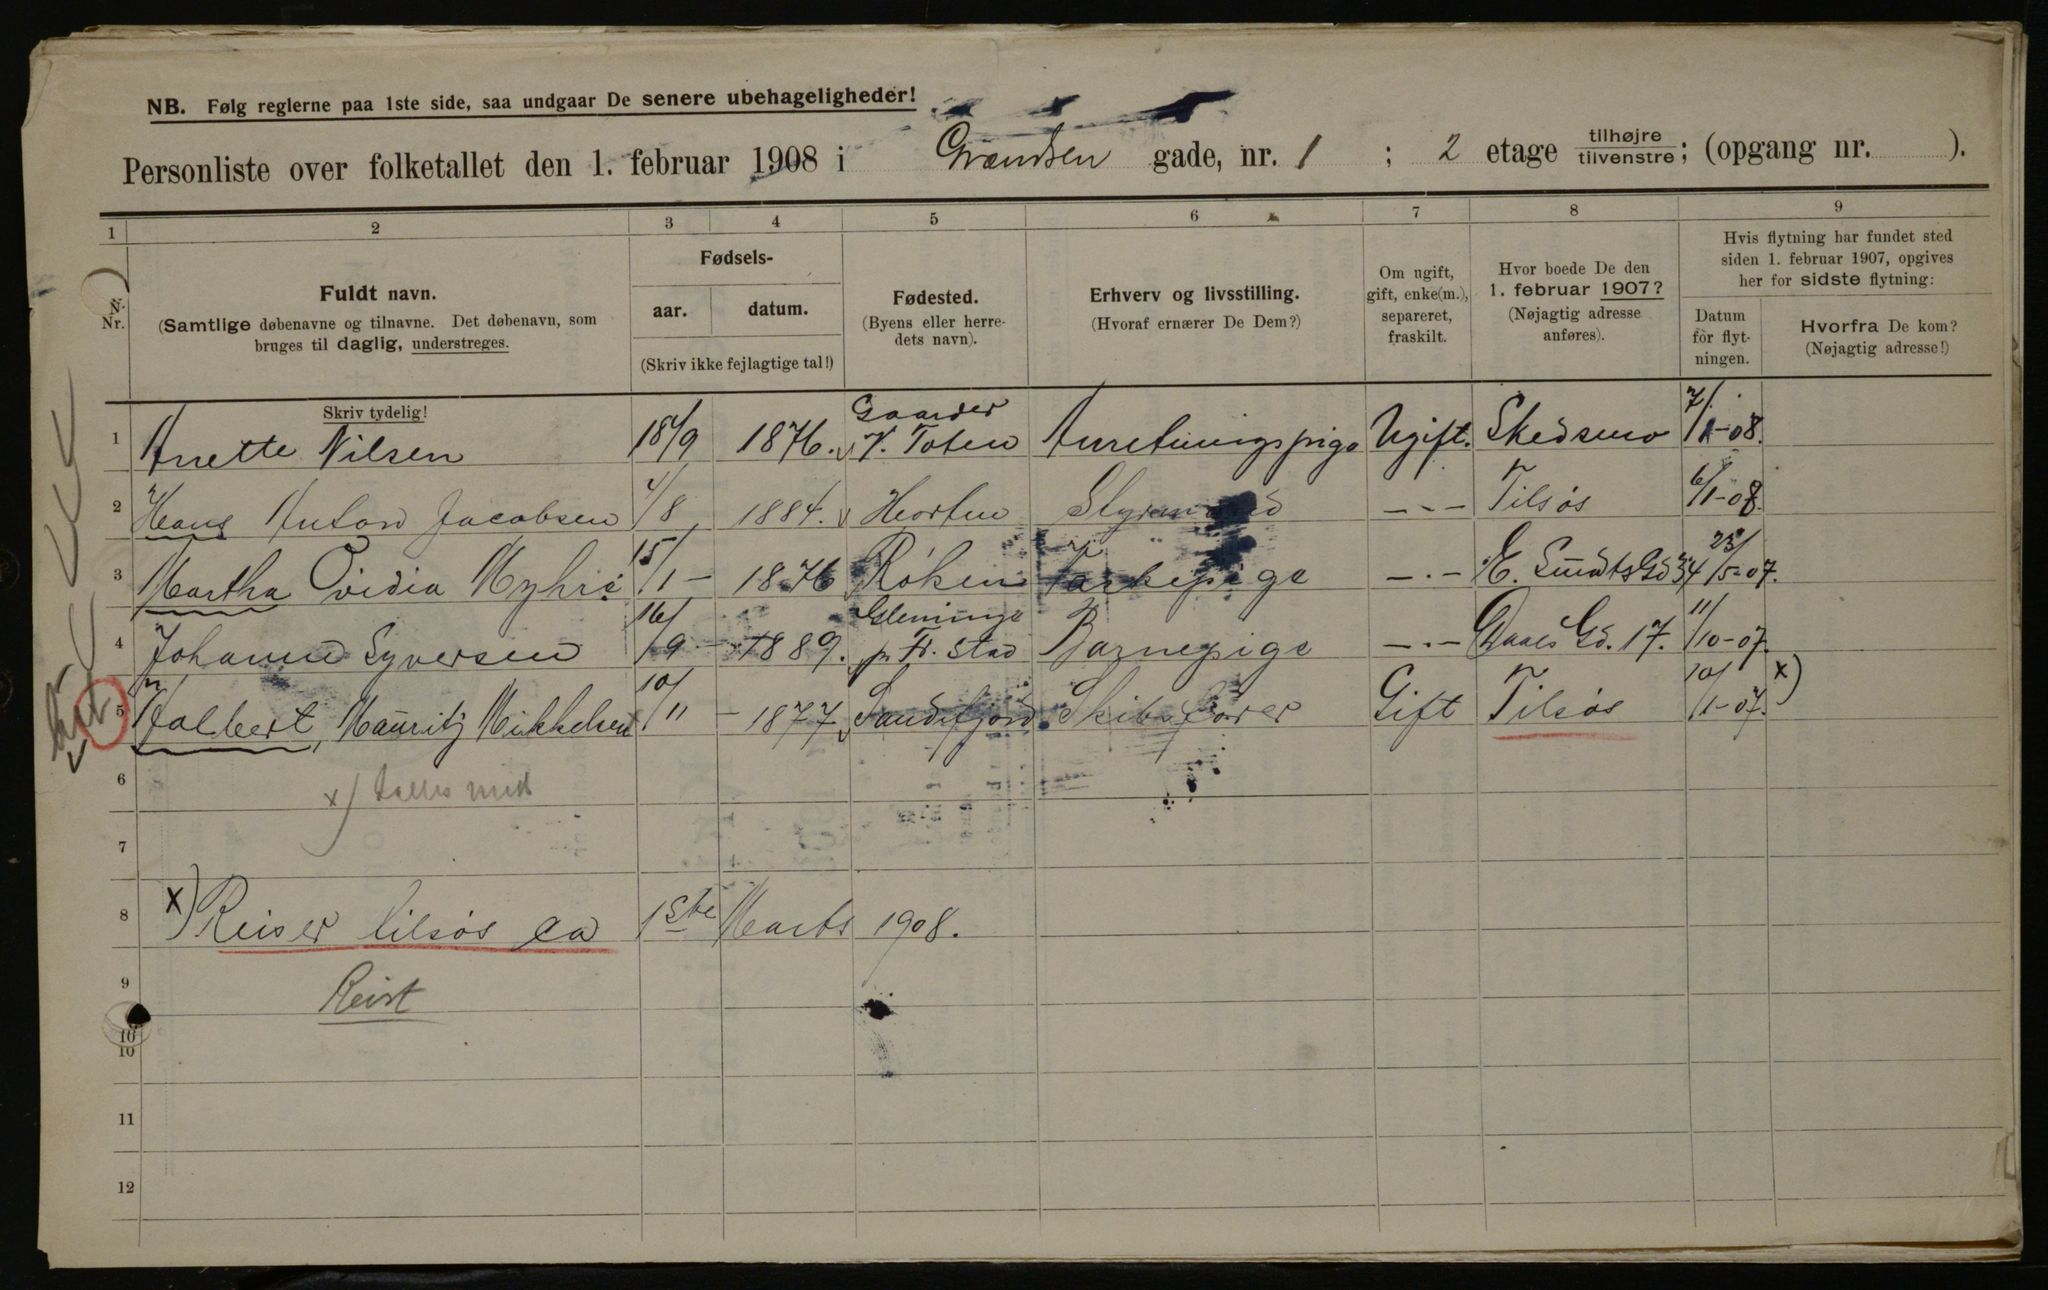 NB. Følg reglerne paa 1ste side, saa undgaar De senere ubehageligheder!
Personliste over folketallet den 1. februar 1908 i Grændsen gade, nr. 1 ; 2 etage tilhøjre tilvenstre ; (opgang nr. ).
1 2 3 4 5 6 7 8 9
N. Nr.
Fuldt navn.
(Samtlige døbenavne og tilnavne. Det døbenavn, som
bruges til daglig, understreges.
Skriv tydelig!
Fødsels-
aar. datum.
(Skriv ikke fejlagtige tal!)
Fødested.
(Byens eller herre-
dets navn).
Erhverv og livsstilling.
(Hvoraf ernærer De Dem?)
Om ugift,
gift, enke(m.),
separeret,
fraskilt.
Hvor boede De den
1. februar 1907?
(Nøjagtig adresse
anføres).
Hvis flytning har fundet sted
siden 1. februar 1907, opgives
her for sidste flytning:
Datum
for flyt-
ningen.
Hvorfra De kom?
(Nøjagtig adresse!)
1 Anette Nilsen 18/9 1876. Gaarder V. Toten Anretningspige Ugift. Skedsmo 7/1-08.
2 Hans Anton Jacobsen 4/8 1884. Horten Styrmand -"- Tilsøs 6/1-08.
3 Martha Ovidia Myhre 15/1 - 1876 Røken -"- 23/5-07.
4 Johanne Syversen 16/9 - 1889. Glemminge p. Fr. stad Barnepige -"- Daals Gd. 17. 11/10-07.
5 Halbert, Mauritz Mikkelsen 10/11 - 1877 Sandefjord Skibsfører Gift Tilsøs 10/1-07. x)
6 x) tælles med
7
8 x) Reiser tilsøs ca 1ste Marts 1908.
9 Reist
10
10
11
12